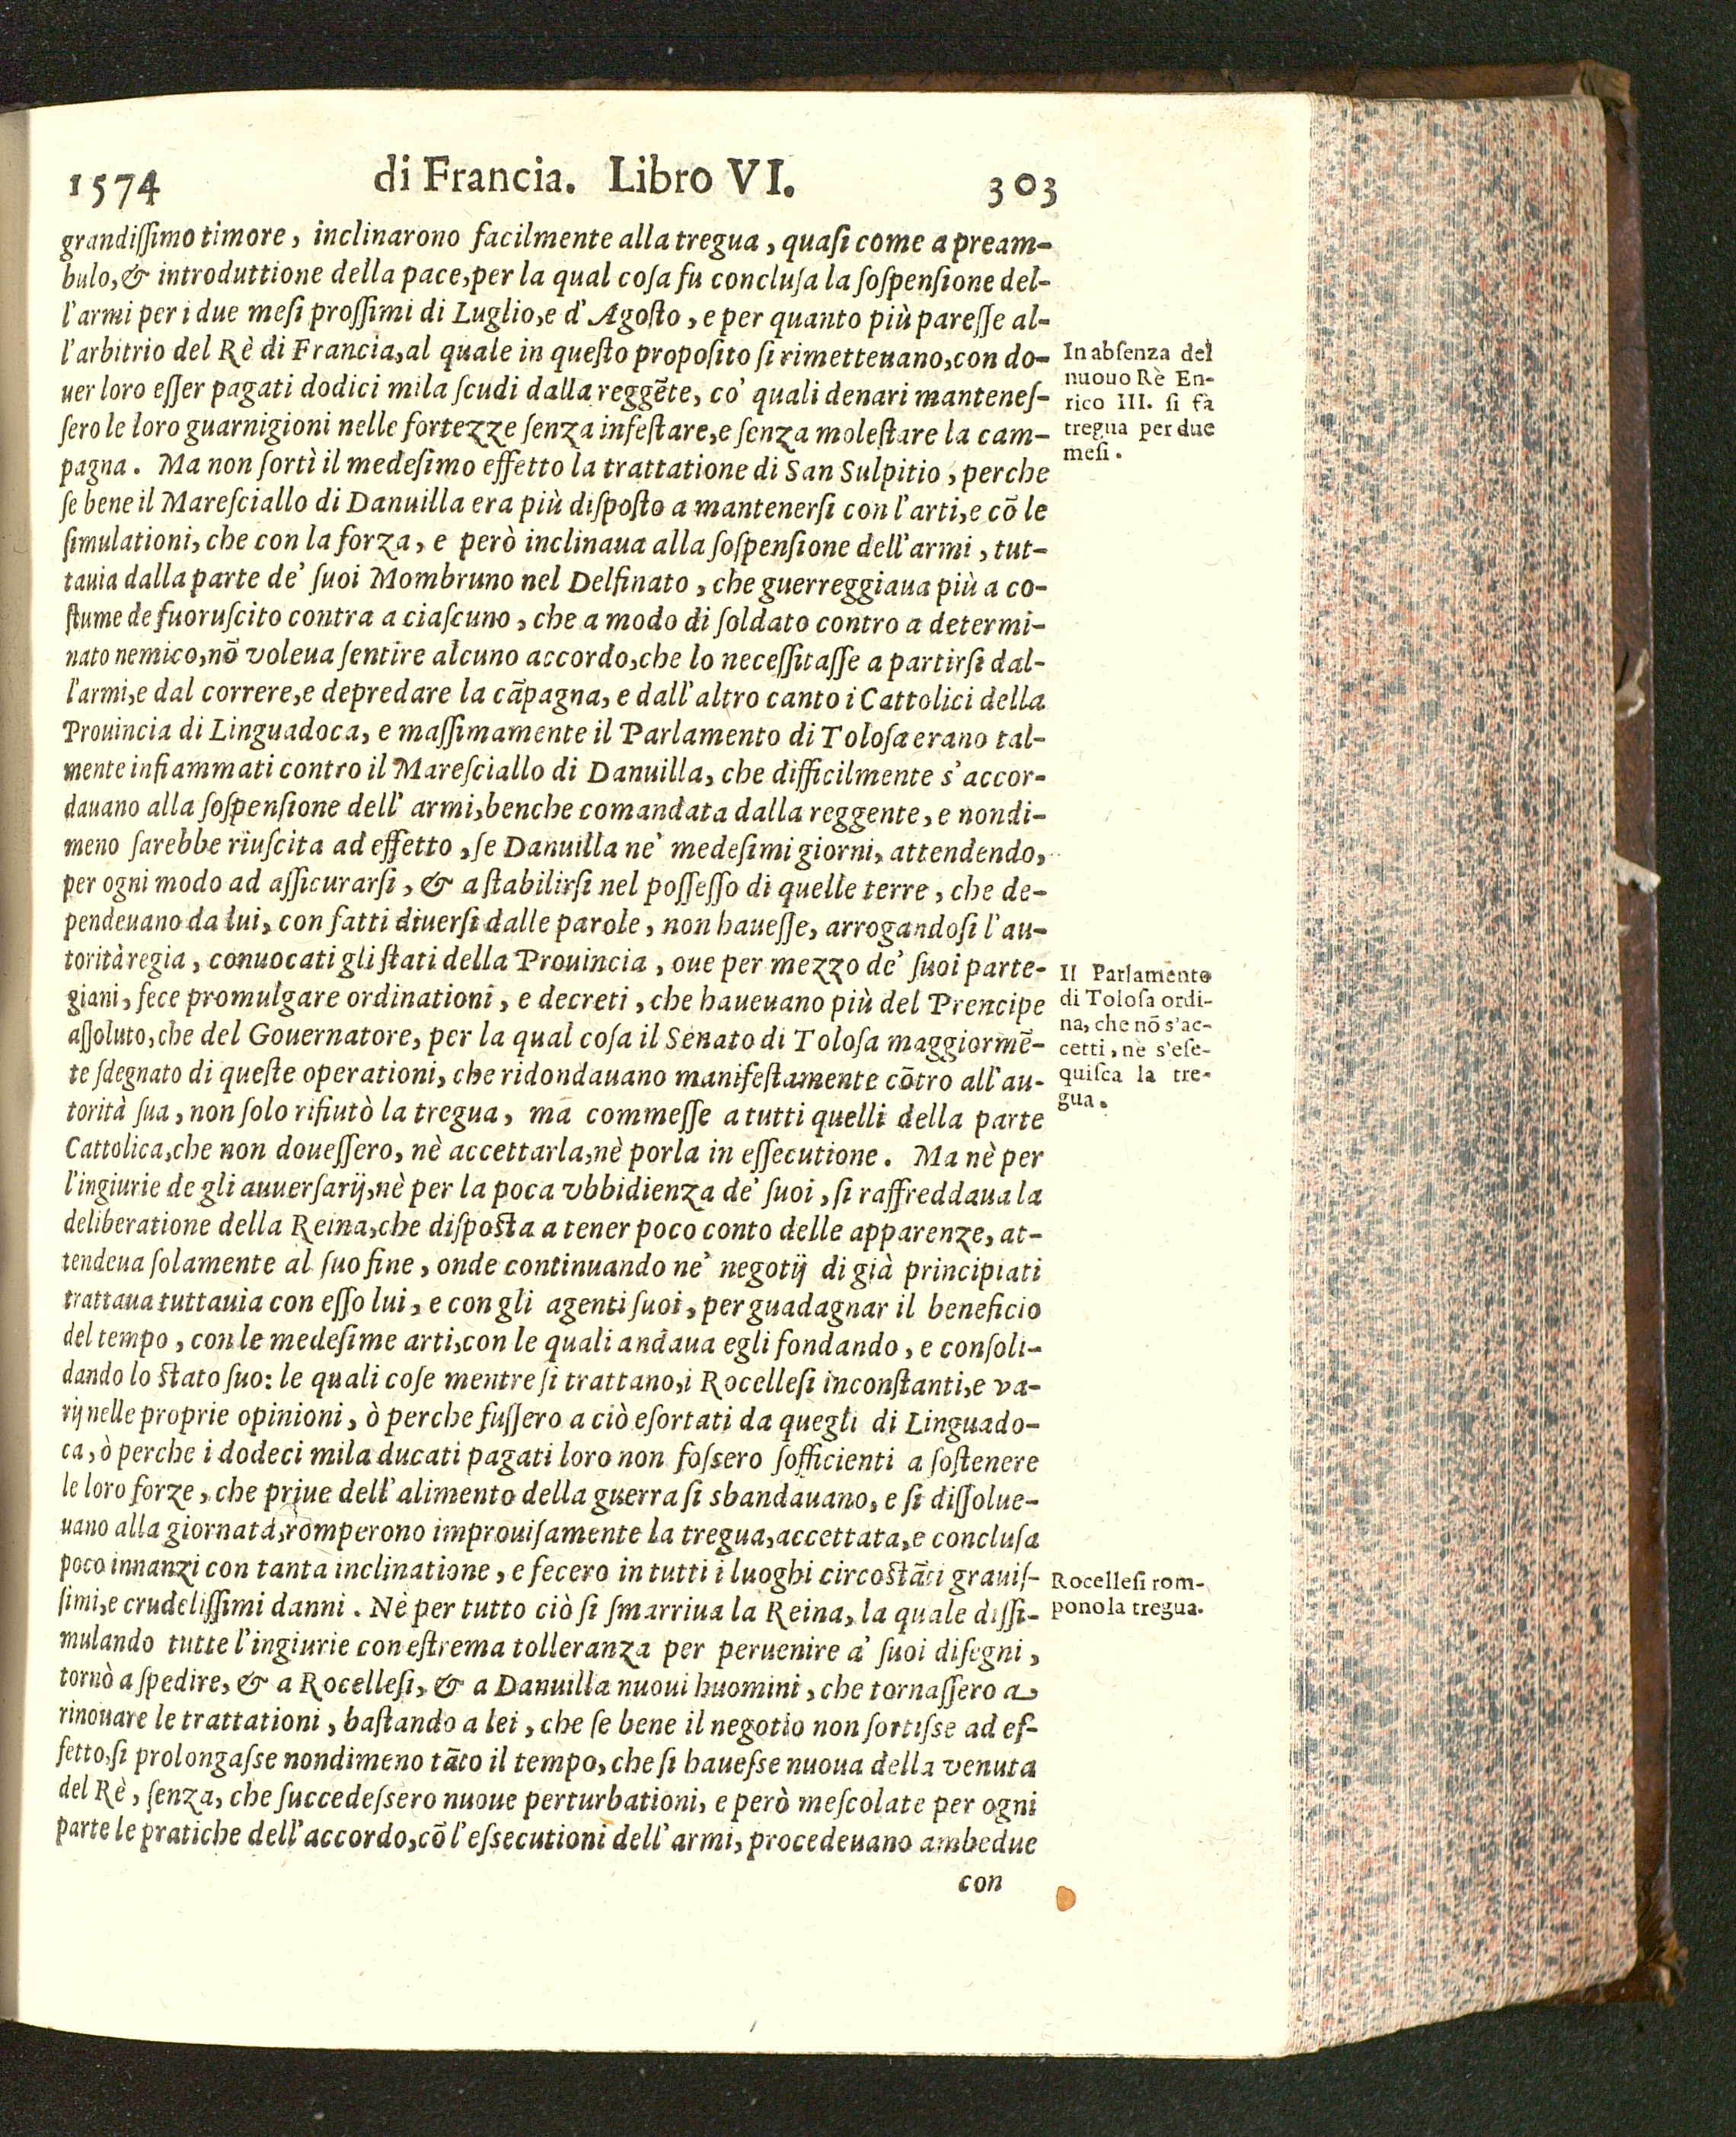 1574 di Francia. Libro VI. 303
grandiſſimo timore, inclinarono facilmente alla tregua, quaſi come a pream-
bulo, & introduttione della pace, per la qual coſa fu concluſa la ſoſpenſione del-
l'armi per i due meſi proſſimi di Luglio, e d'Agoſto, e per quanto più pareſſe al-
l'arbitrio del Rè di Francia, al quale in queſto propoſito ſi rimetteuano, con do-
uer loro eſſer pagati dodici mila ſcudi dalla reggẽte, co' quali denari manteneſ-
ſero le loro guarnigioni nelle fortezze ſenza infeſtare, e ſenza moleſtare la cam-
pagna. Ma non ſortì il medeſimo effetto la trattatione di San Sulpitio, perche
ſe bene il Mareſciallo di Danuilla era più diſpoſto a mantenerſi con l'arti, e cõ le
ſimulationi, che con la forza, e però inclinaua alla ſoſpenſione dell'armi, tut-
tauia dalla parte de' ſuoi Mombruno nel Delfinato, che guerreggiaua più a co-
ſtume de fuoruſcito contra a ciaſcuno, che a modo di ſoldato contro a determi-
nato nemico, nõ voleua ſentire alcuno accordo, che lo neceſſitaſſe a partirſi dal-
l'armi, e dal correre, e depredare la cãpagna, e dall'altro canto i Cattolici della
Prouincia di Linguadoca, e maſſimamente il Parlamento di Toloſa erano tal-
mente infiammati contro il Mareſciallo di Danuilla, che difficilmente s'accor-
dauano alla ſoſpenſione dell' armi, benche comandata dalla reggente, e nondi-
meno ſarebbe riuſcita ad effetto, ſe Danuilla ne' medeſimi giorni, attendendo,
per ogni modo ad aſſicurarſi, & a ſtabilirſi nel poſſeſſo di quelle terre, che de-
pendeuano da lui, con fatti diuerſi dalle parole, non haueſſe, arrogandoſi l'au-
torità regia, conuocati gli ſtati della Prouincia, oue per mezzo de' ſuoi parte-
giani, fece promulgare ordinationi, e decreti, che haueuano più del Prencipe
aſſoluto, che del Gouernatore, per la qual coſa il Senato di Toloſa maggiormẽ-
te ſdegnato di queſte operationi, che ridondauano manifeſtamente cõtro all'au-
torità ſua, non ſolo rifiutò la tregua, ma commeſſe a tutti quelli della parte
Cattolica, che non doueſſero, nè accettarla, nè porla in eſſecutione. Ma nè per
l'ingiurie de gli auuerſarij, nè per la poca vbbidienza de' ſuoi, ſi raffreddaua la
deliberatione della Reina, che diſpoſta a tener poco conto delle apparenze, at-
tendeua ſolamente al ſuo fine, onde continuando ne' negotij di già principiati
trattaua tuttauia con eſſo lui, e con gli agenti ſuoi, per guadagnar il beneficio
del tempo, con le medeſime arti, con le quali andaua egli fondando, e conſoli-
dando lo ſtato ſuo: le quali coſe mentre ſi trattano, i Rocelleſi inconſtanti, e va-
rij nelle proprie opinioni, ò perche fuſſero a ciò eſortati da quegli di Linguado-
ca, ò perche i dodeci mila ducati pagati loro non foſsero ſofficienti a ſoſtenere
le loro forze, che priue dell'alimento della guerra ſi sbandauano, e ſi diſſolue-
uano alla giornata, romperono improuiſamente la tregua, accettata, e concluſa
poco innanzi con tanta inclinatione, e fecero in tutti i luoghi circoſtãti grauiſ-
ſimi, e crudeliſſimi danni. Nè per tutto ciò ſi ſmarriua la Reina, la quale diſſi-
mulando tutte l'ingiurie con eſtrema tolleranza per peruenire a' ſuoi diſegni,
tornò a ſpedire, & a Rocelleſi, & a Danuilla nuoui huomini, che tornaſſero a
rinouare le trattationi, baſtando a lei, che ſe bene il negotio non ſortiſse ad ef-
fetto, ſi prolongaſse nondimeno tãto il tempo, che ſi haueſse nuoua della venuta
del Rè, ſenza, che ſuccedeſsero nuoue perturbationi, e però meſcolate per ogni
parte le pratiche dell'accordo, cõ l'eſsecutioni dell'armi, procedeuano ambedue
con
In abſenza del
nuouo Rè En-
rico III. ſi fà
tregua per due
meſi.
Il Parlamento
di Toloſa ordi-
na, che nõ s'ac-
cetti, nè s'eſe-
quiſca la tre-
gua.
Rocelleſi rom-
pono la tregua.